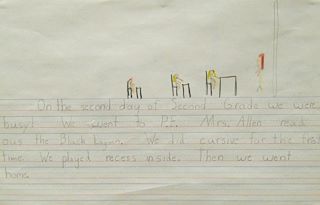 On the second day of Second Grade we were
busy! We went to P.E. Mrs. Allen read
ous the Black Lagun. We did cursive for the frist
time. We played recess inside. Then we went
home.